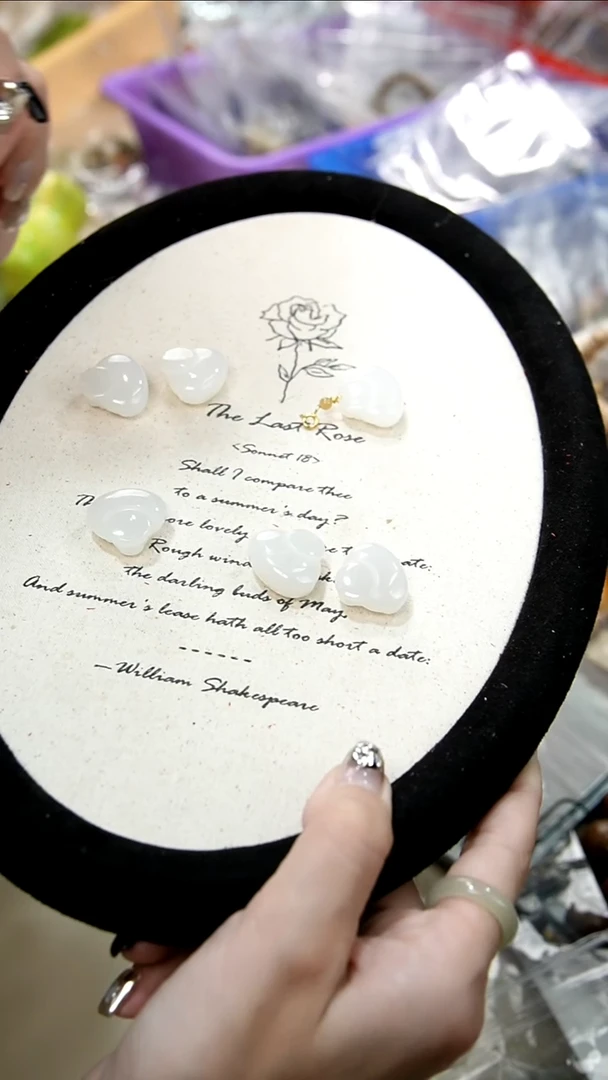 The Last Rose
<Sonnet 18>
Shall I compare thee
to a summer's day?
ore lovely
ate:
Rough wina
the darling buds of May,
And summer's lease hath all too short a date:
------
—William Shakespeare